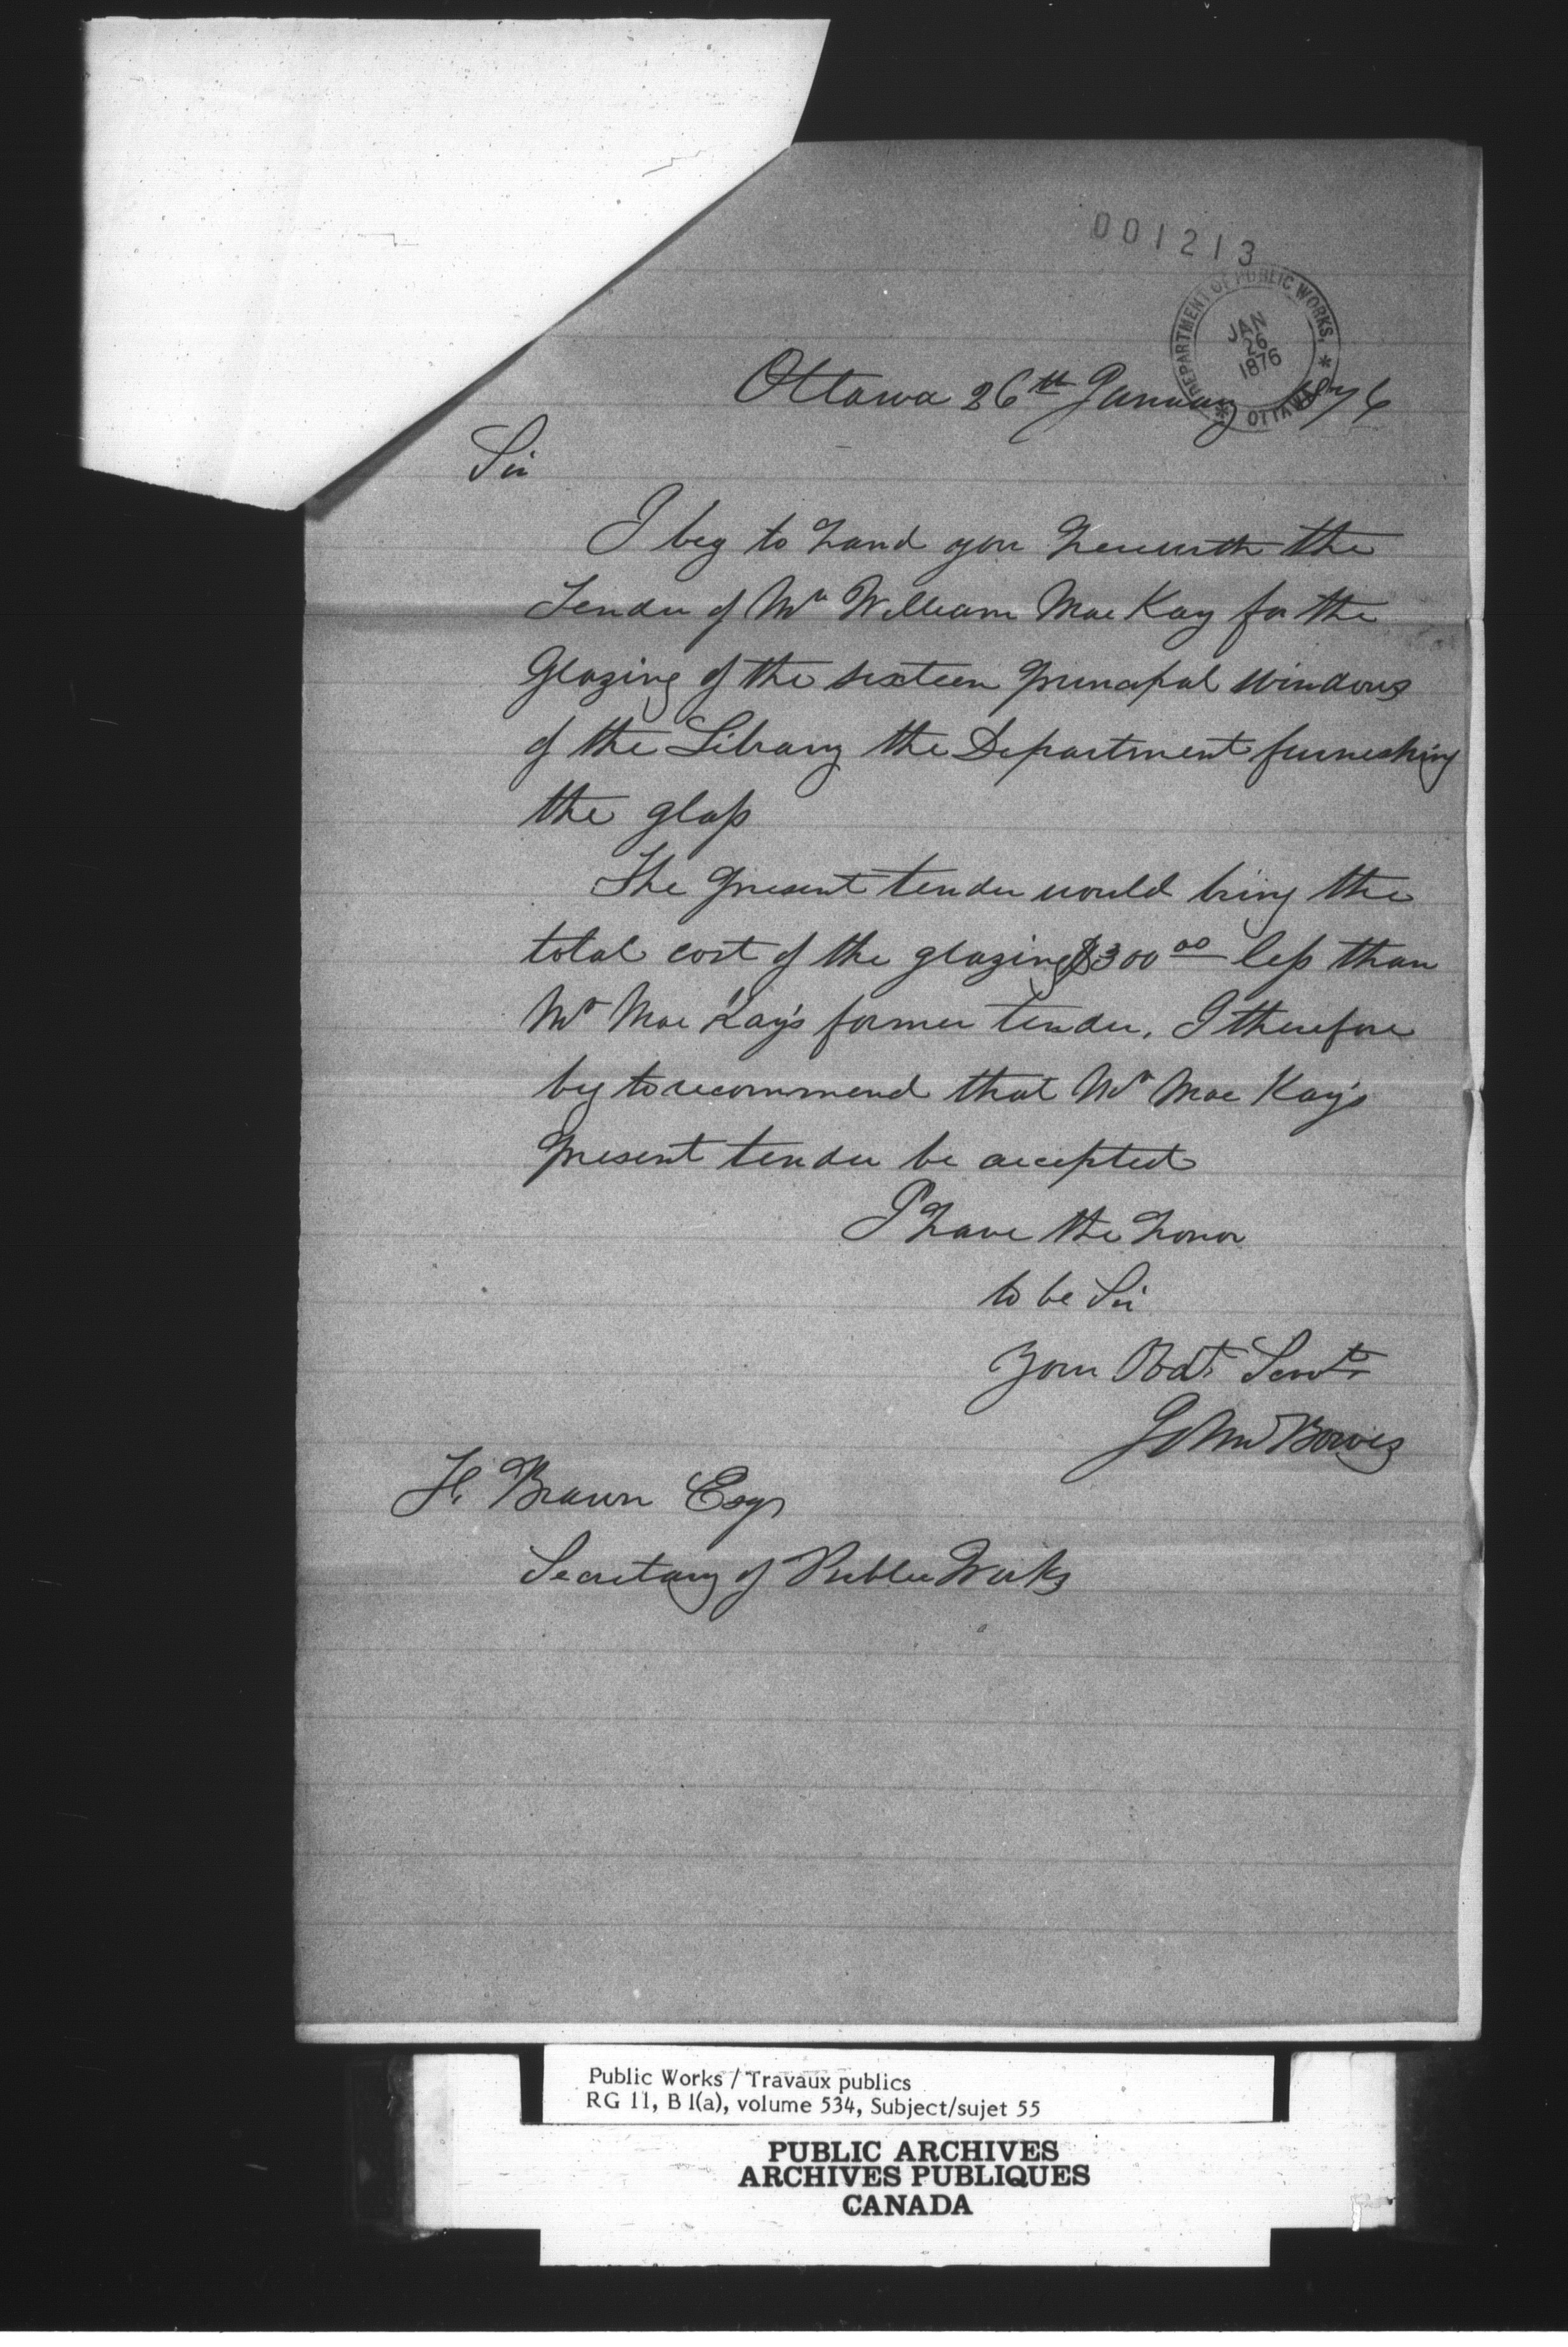 001213
DEPARTMENT OF PUBLIC WORKS, * OTTAWA *
JAN
26
1876
Ottawa 26th January 1876
Sir
I beg to hand you herewith the
Tender of Mr William MacKay for the
Glazing of the sixteen principal windows
of the Library the Department furnishing
the glass
The present tender would bring the
total cost of the glazing $300 00 less than
Mr MacKay's former tender, I therefore
beg to recommend that Mr MacKay's
present tender be accepted
I have the honor
to be Sir
Your Obdt Servt
John Bowes
F. Braun Esqr
Secretary of Public Works
Public Works / Travaux publics
RG 11, B 1(a), volume 534, Subject/sujet 55
PUBLIC ARCHIVES
ARCHIVES PUBLIQUES
CANADA